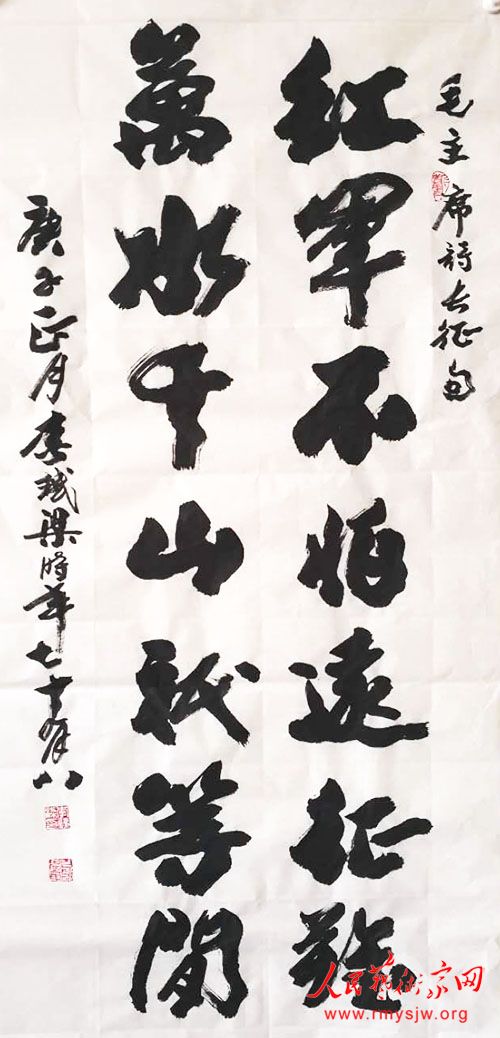 毛主席詩长征句
紅軍不怕遠征難
萬水千山祇等閒
庚子正月李梁時年七十有八
人民藝術家网
www.rmysjw.org